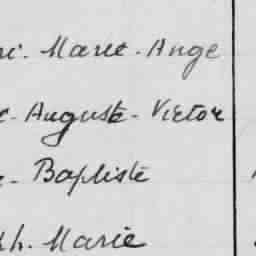 Marie - Ange
Auguste - Victor
- Baptiste
ph. Marie